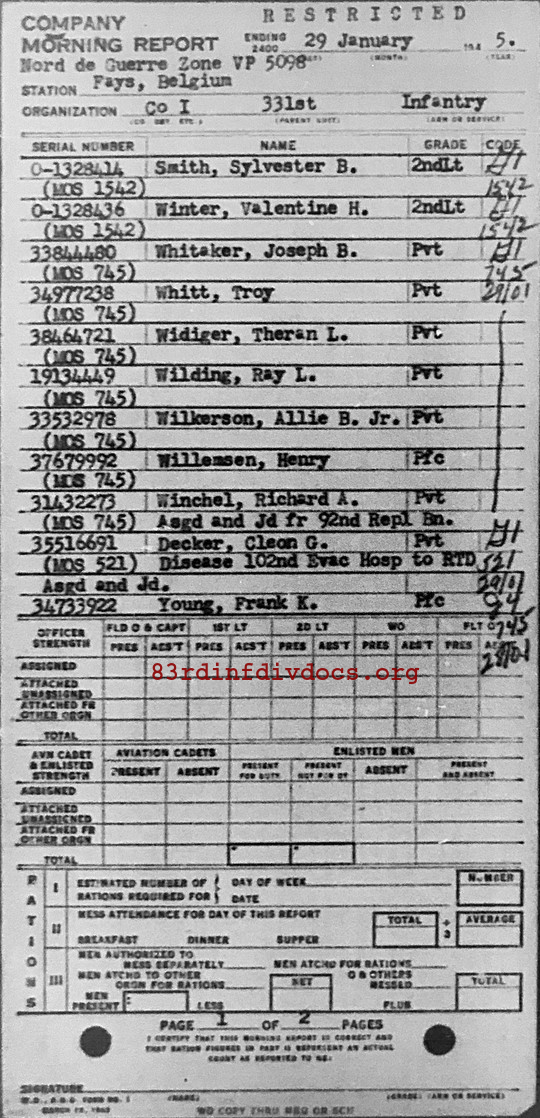 RESTRICTED
COMPANY
MORNING REPORT ENDING 2400 29 January 194 5.
Nord de Guerre Zone VP 5098 (DAY) (MONTH) (YEAR)
STATION Fays, Belgium
ORGANIZATION Co I 331st Infantry
(CO. DET. ETC.) (PARENT UNIT) (ARM OR SERVICE)
SERIAL NUMBER NAME GRADE CODE
O-1328414 Smith, Sylvester B. 2ndLt
(MOS 1542) 1542
O-1328436 Winter, Valentine H. 2ndLt
(MOS 1542) 1542
33844480 Whitaker, Joseph B. Pvt
(MOS 745) 745
34977238 Whitt, Troy Pvt 29/01
(MOS 745)
38464721 Widiger, Theran L. Pvt
(MOS 745)
19134449 Wilding, Ray L. Pvt
(MOS 745)
33532978 Wilkerson, Allie B. Jr. Pvt
(MOS 745)
37679992 Willemsen, Henry Pfc
(MOS 745)
31432273 Winchel, Richard A. Pvt
(MOS 745) Asgd and Jd fr 92nd Repl Bn.
35516691 Decker, Cleon G. Pvt
(MOS 521) Disease 102nd Evac Hosp to RTD 521
Asgd and Jd. 29/01
34733922 Young, Frank K. Pfc
OFFICER STRENGTH FLD O & CAPT 1ST LT 2D LT WO FLT O 745
PRES ABS'T PRES ABS'T PRES ABS'T PRES ABS'T PRES
ASSIGNED 83rdinfdivdocs.org
ATTACHED UNASSIGNED
ATTACHED FR OTHER ORGN
TOTAL
AVN CADET & ENLISTED STRENGTH AVIATION CADETS ENLISTED MEN
PRESENT ABSENT PRESENT FOR DUTY PRESENT NOT FOR DY ABSENT PRESENT AND ABSENT
ASSIGNED
ATTACHED UNASSIGNED
ATTACHED FR OTHER ORGN
TOTAL
RATIONS
I ESTIMATED NUMBER OF RATIONS REQUIRED FOR { DAY OF WEEK DATE NUMBER
II MESS ATTENDANCE FOR DAY OF THIS REPORT TOTAL ÷ 3 AVERAGE
BREAKFAST DINNER SUPPER
III MEN AUTHORIZED TO MESS SEPARATELY MEN ATCHD FOR RATIONS
MEN ATCHD TO OTHER ORGN FOR RATIONS NET O & OTHERS MESSED TOTAL
MEN PRESENT LESS PLUS
PAGE 1 OF 2 PAGES
I CERTIFY THAT THIS MORNING REPORT IS CORRECT AND
THAT RATION FIGURES IN PART II REPRESENT AN ACTUAL
COUNT AS REPORTED TO ME:
SIGNATURE
W.D., A.G.O. FORM NO. 1 (NAME) (GRADE) (ARM OR SERVICE)
MARCH 12, 1943